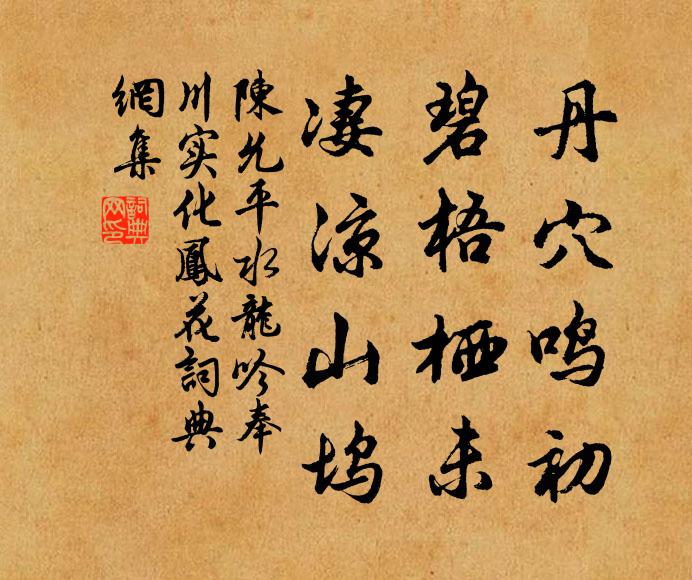 丹穴鸣初
碧梧栖未
凄凉山坞
陳允平水龍吟奉
川实化鳳花詞典
網集
詞典
网印